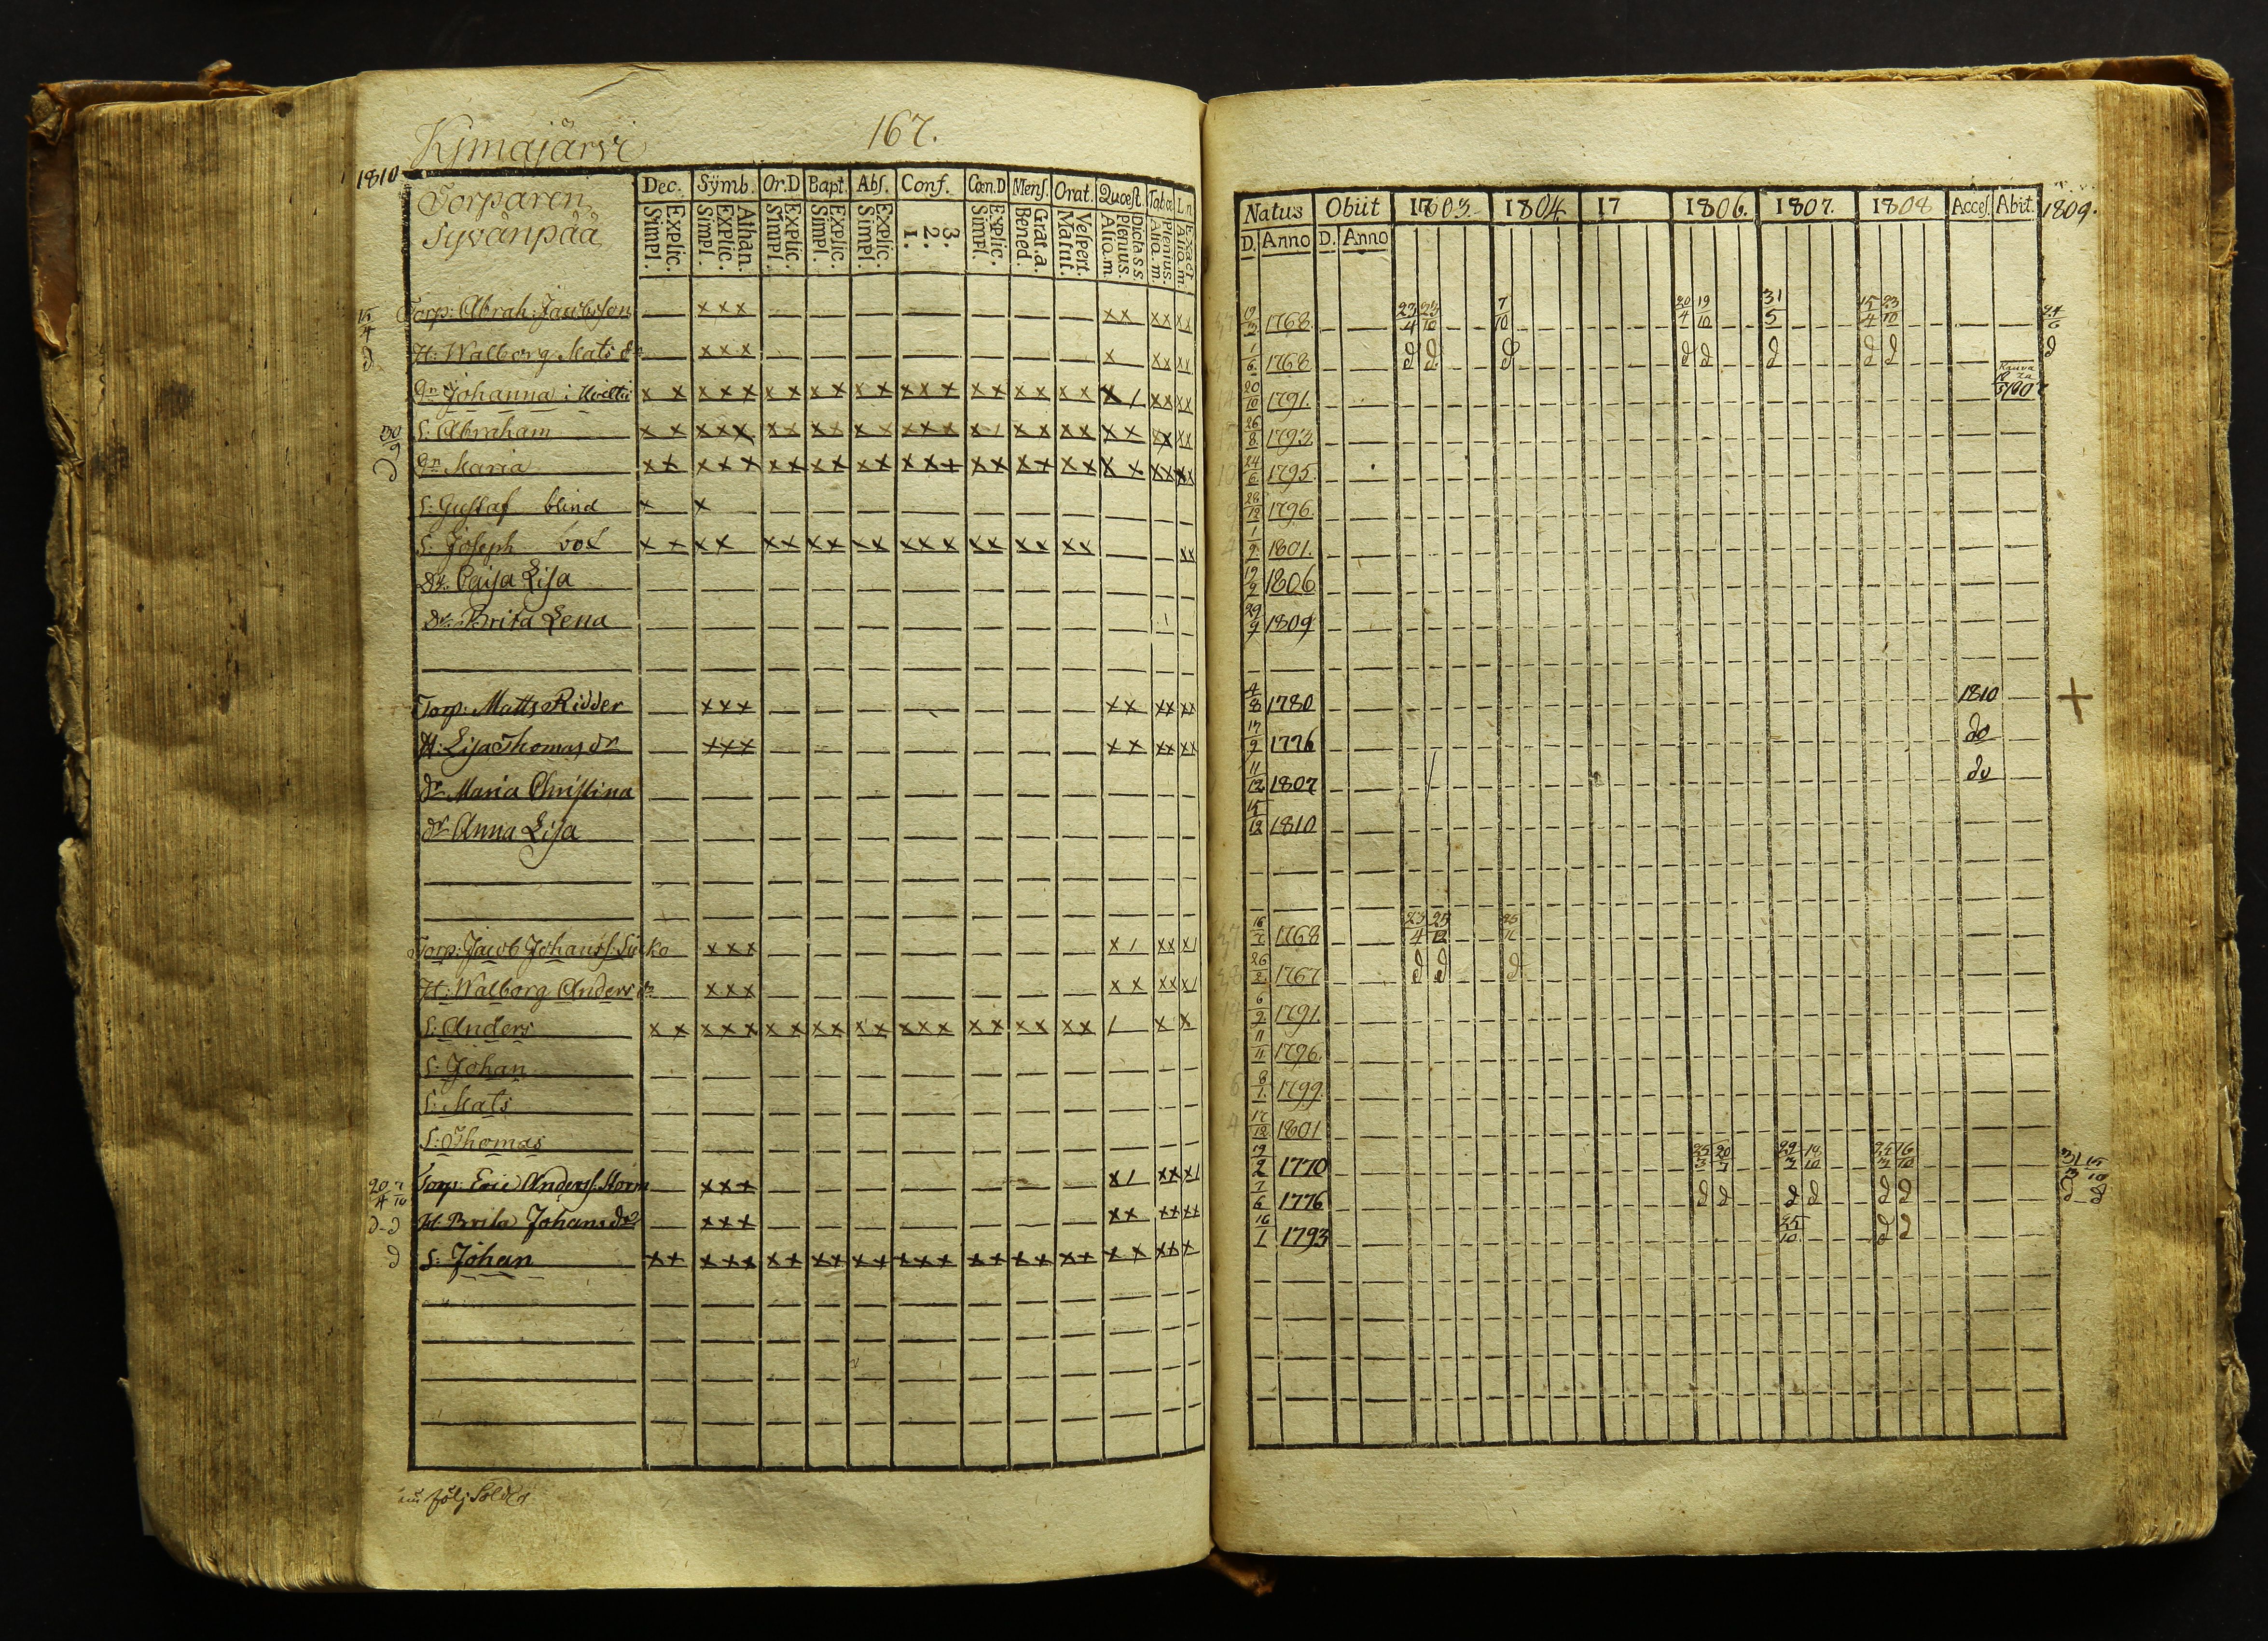 Kjmäjärvi
167.
1810
Torparen
Syvänpää
Dec. Sÿmb. Or.D Bapt. Abſ. Conf. Cœn.D Menſ. Orat. Quœſt. Tab.a L.n
Explic. Simpl.
Athan. Explic. Simpl.
Explic. Simpl.
Explic. Simpl.
Explic. Simpl.
3. 2. 1.
Explic. Simpl.
Grat.a. Bened.
Veſpert. Matut.
Dicta s.s. Plenius. Alio.m.
Plenius. Alio.m.
Exact Alio.m.
Natus Obiit 1803. 1804 17 1806. 1807. 1808 Acceſ. Abit. 1809.
D. Anno D. Anno
Torp: Abrah: Jacobsson 1768
23/4 23/10 7/10 20/4 19/10 31/5 15/4 23/10 24/6
15/4
H: Walborg Mats dr 1/6 1768
d d d d d d d d d
dr Johanna 20/10 1791.
S: Abraham 26/8 1793.
30/9
dr Maria 24/6 1795.
S: Gustaf blind 28/12 1796.
S: Joseph 1/9 1801.
dr. Caisa Lisa 19/9 1806
dr. Brita Lena 29/9 1809
Torp: Matts Ridder 4/8 1780 1810
H: Lisa Thomas dr 17/9 1776 do
dr Maria Christina 11/12 1807 do
dr Anna Lisa 15/12 1810
Torp: Jacob Johanss. 1768
23/4
H: Walborg Anders dr 26/2 1767
d d d
S: Anders 6/9 1791
S: Johan 11/11 1796.
S: Mats 8/1 1799.
S: Thomas 17/12 1801
Torp: Eric Anderss. Storm 19/2 1770
H: Brita Johans dr 7/6 1776
d d d d d d d d
S: Johan 16/1 1793
25/10 d d